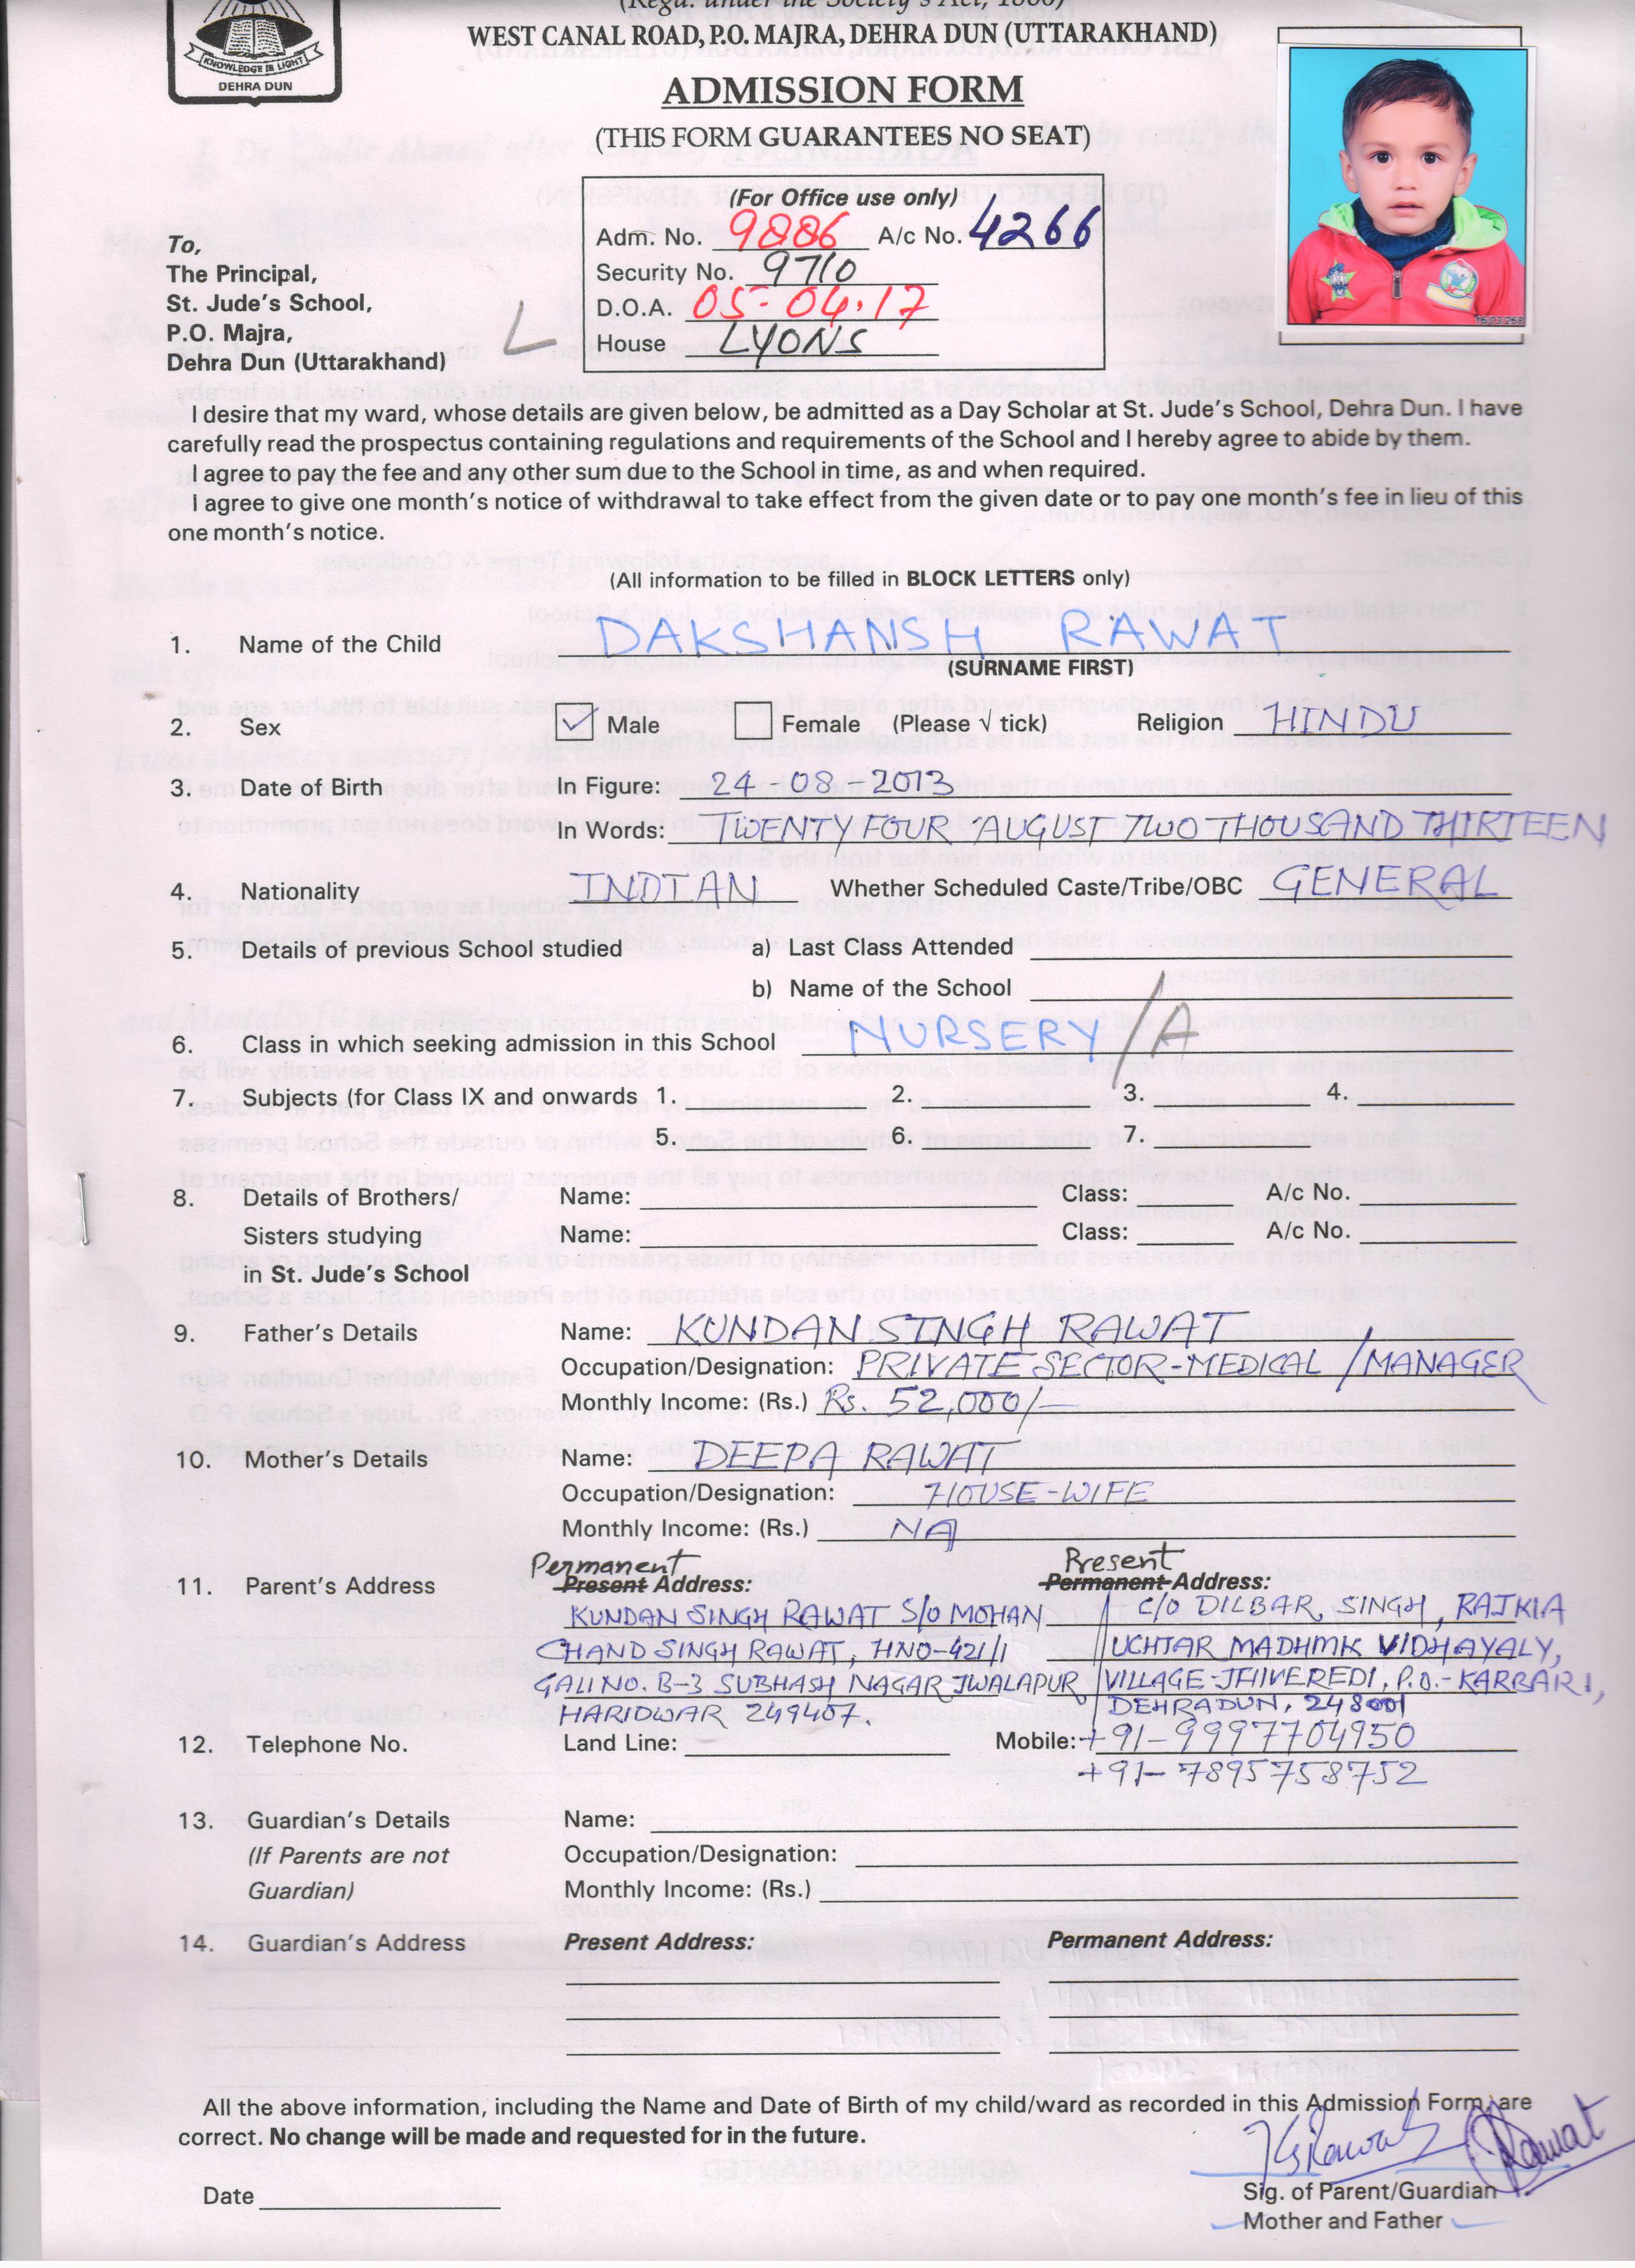 (Regd. under the Society's Act, 1860)
WEST CANAL ROAD, P.O. MAJRA, DEHRA DUN (UTTARAKHAND)
KNOWLEDGE IS LIGHT
DEHRA DUN
ADMISSION FORM
(THIS FORM GUARANTEES NO SEAT)
16/03/268
(For Office use only)
Adm. No. 9886 A/c No. 4266
Security No. 9710
D.O.A. 05-04-17
House LYONS
To,
The Principal,
St. Jude's School,
P.O. Majra,
Dehra Dun (Uttarakhand)
L
I desire that my ward, whose details are given below, be admitted as a Day Scholar at St. Jude's School, Dehra Dun. I have
carefully read the prospectus containing regulations and requirements of the School and I hereby agree to abide by them.
I agree to pay the fee and any other sum due to the School in time, as and when required.
I agree to give one month's notice of withdrawal to take effect from the given date or to pay one month's fee in lieu of this
one month's notice.
(All information to be filled in BLOCK LETTERS only)
1. Name of the Child DAKSHANSH RAWAT
(SURNAME FIRST)
2. Sex Male Female (Please √ tick) Religion HINDU
3. Date of Birth In Figure: 24-08-2013
In Words: TWENTY FOUR AUGUST TWO THOUSAND THIRTEEN
4. Nationality INDIAN Whether Scheduled Caste/Tribe/OBC GENERAL
5. Details of previous School studied a) Last Class Attended
b) Name of the School
6. Class in which seeking admission in this School NURSERY /A
7. Subjects (for Class IX and onwards 1. 2. 3. 4.
5. 6. 7.
8. Details of Brothers/ Name: Class: A/c No.
Sisters studying Name: Class: A/c No.
in St. Jude's School
9. Father's Details Name: KUNDAN SINGH RAWAT
Occupation/Designation: PRIVATE SECTOR-MEDICAL / MANAGER
Monthly Income: (Rs.) Rs. 52,000/-
10. Mother's Details Name: DEEPA RAWAT
Occupation/Designation: HOUSE-WIFE
Monthly Income: (Rs.) NA
Permanent Present
11. Parent's Address Present Address: Permanent Address:
KUNDAN SINGH RAWAT S/O MOHAN C/O DILBAR SINGH, RAJKIA
CHAND SINGH RAWAT, HNO-421/1 UCHTAR MADHMK VIDHAYALY,
GALI NO. B-3 SUBHASH NAGAR JWALAPUR VILLAGE-JHIVEREDI, P.O.-KARBARI,
HARIDWAR 249407. DEHRADUN, 248001
12. Telephone No. Land Line: Mobile: +91-9997704950
+91-7895758752
13. Guardian's Details Name:
(If Parents are not Occupation/Designation:
Guardian) Monthly Income: (Rs.)
14. Guardian's Address Present Address: Permanent Address:
All the above information, including the Name and Date of Birth of my child/ward as recorded in this Admission Form, are
correct. No change will be made and requested for in the future.
KSRawat Rawat
Date
Sig. of Parent/Guardian
Mother and Father